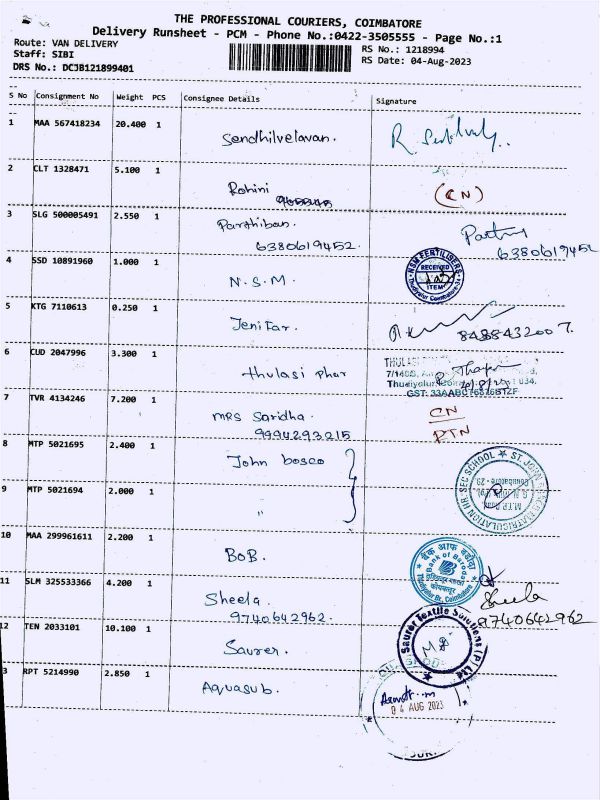 THE PROFESSIONAL COURIERS, COIMBATORE
Delivery Runsheet - PCM - Phone No.:0422-3505555 - Page No.:1
Route: VAN DELIVERY
RS No.: 1218994
Staff: SIBI
RS Date: 04-Aug-2023
DRS No.: DCJB121899401
S No Consignment No Weight PCS Consignee Details Signature
1 MAA 567418234 20.400 1 Sendhilvelavan.
2 CLT 1328471 5.100 1 Rohini (CN)
3 SLG 500005491 2.550 1 Parthiban.
6380619452. 6380619452
4 SSD 10891960 1.000 1 N.S.M.
NSM FERTILISERS
RECEIVED
ITEM
Thudiyalur Coimbatore-34
5 KTG 7110613 0.250 1 Jenifar. 8438432007.
6 CUD 2047996 3.300 1 thulasi phar
THULASI
7 TVR 4134246 7.200 1 mrs Saridha. CN
9994293215 RTN
8 MTP 5021695 2.400 1 John bosco
9 MTP 5021694 2.000 1 "
MATRICULATION HR. SEC SCHOOL ★ ST. JOHN
Coimbatore - 29
10 MAA 299961611 2.200 1 BOB.
बैंक ऑफ बड़ौदा
Bank of Baroda
Thudiyalur Br. Coimbatore
11 SLM 325533366 4.200 1 Sheela. Sheela
9740642962. 9740642962
12 TEN 2033101 10.100 1 Saurer.
Saurer Textile Solutions (P) Ltd
3 RPT 5214990 2.850 1 Aquasub.
04 AUG 2023